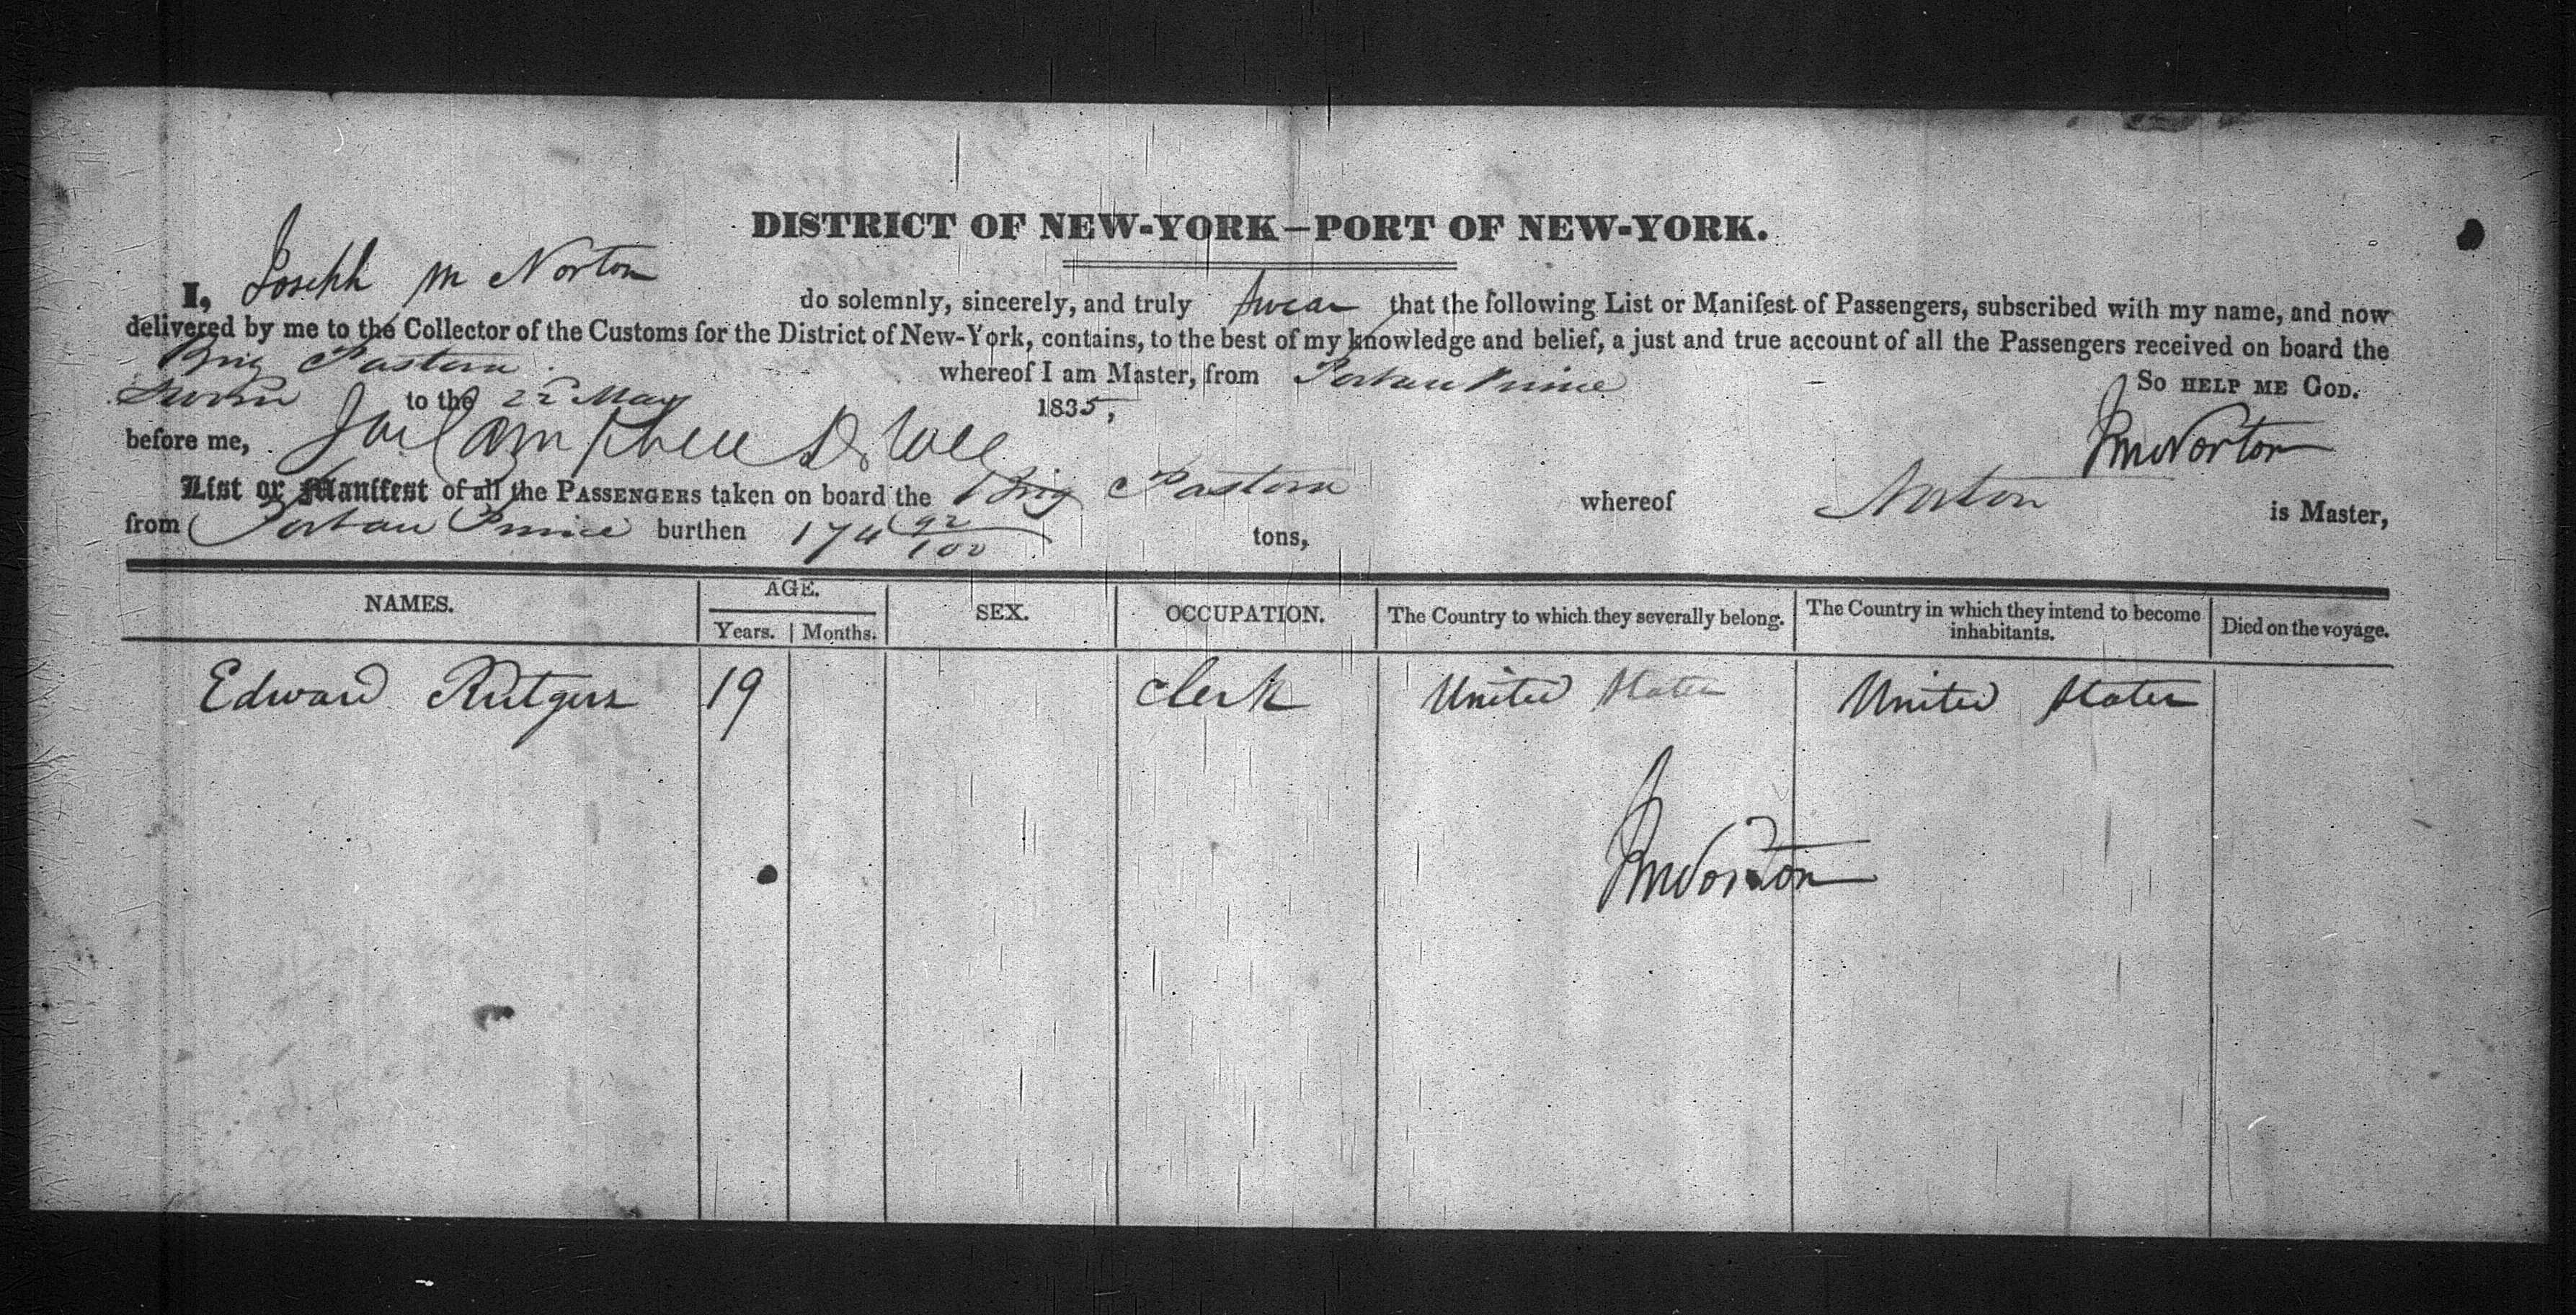 DISTRICT OF NEW-YORK—PORT OF NEW-YORK.
I, Joseph M Norton do solemnly, sincerely, and truly swear that the following List or Manifest of Passengers, subscribed with my name, and now
delivered by me to the Collector of the Customs for the District of New-York, contains, to the best of my knowledge and belief, a just and true account of all the Passengers received on board the
Brig Pastora whereof I am Master, from Port au Prince So HELP ME GOD.
Sworn to the 22 May 1835,
before me, J M Norton
List or Manifest of all the PASSENGERS taken on board the Brig Pastora whereof Norton is Master,
from Port au Prince burthen 174 92/100 tons,
NAMES. AGE. SEX. OCCUPATION. The Country to which they severally belong. The Country in which they intend to become inhabitants. Died on the voyage.
Years. Months.
Edward Rutgers 19 Clerk United States United States
J M Norton